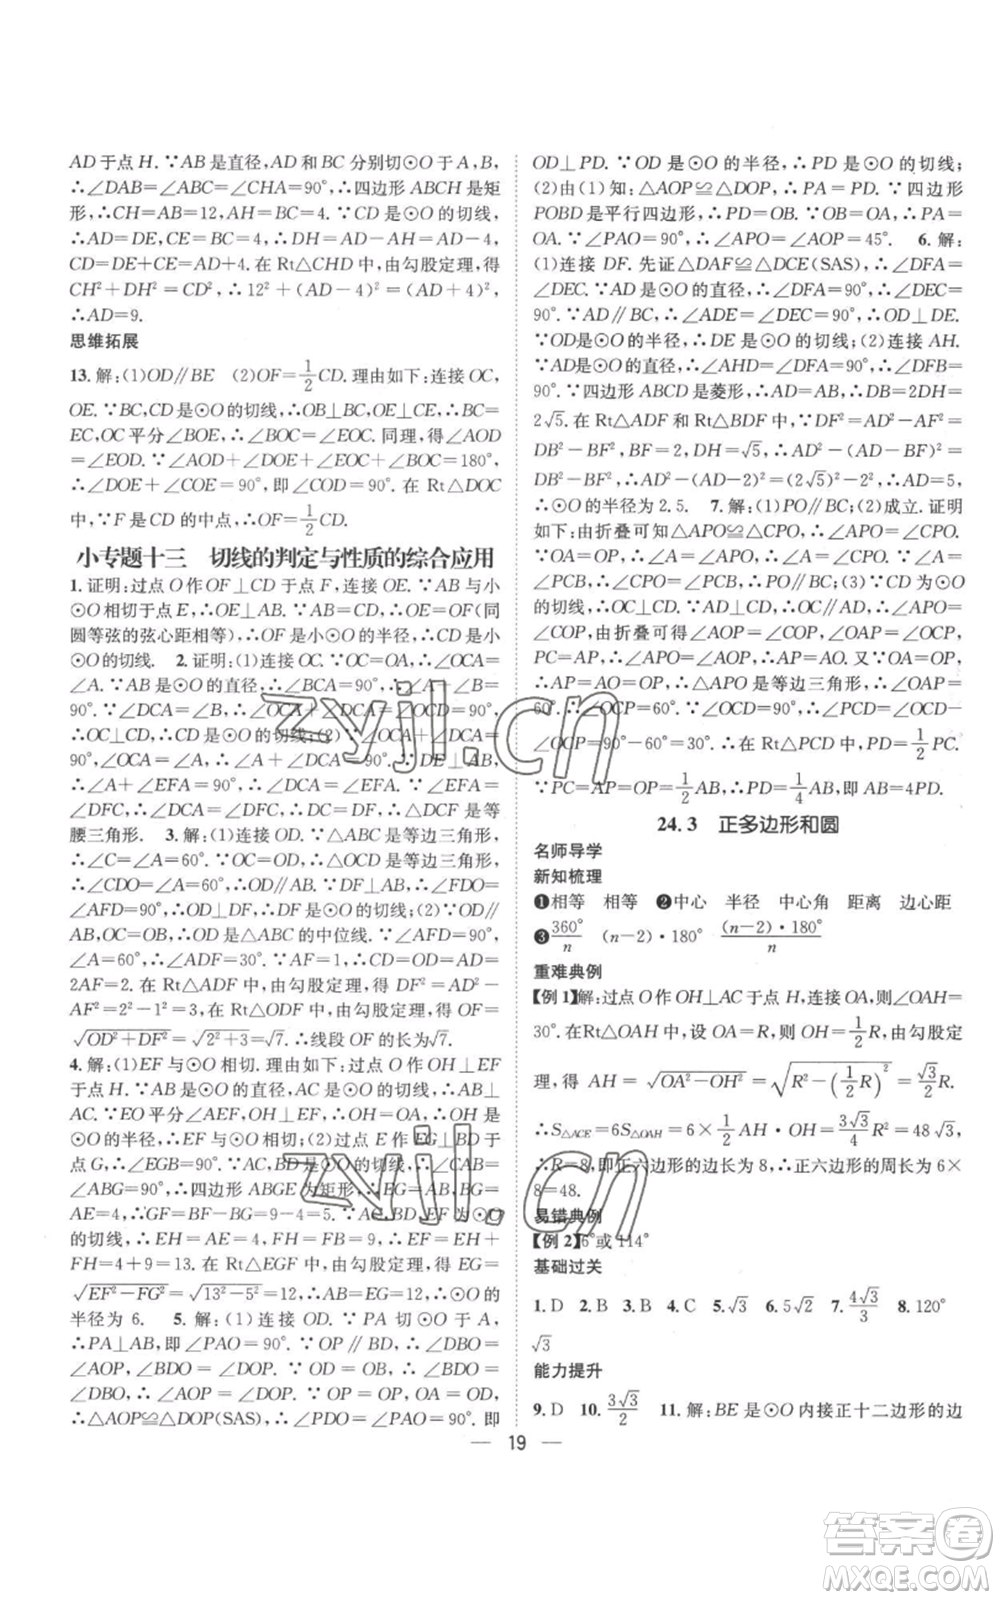 AD于点H.∵AB是直径,AD和BC分别切⊙O于A,B,
∴∠DAB=∠ABC=∠CHA=90°,∴四边形ABCH是矩
形,∴CH=AB=12,AH=BC=4.∵CD是⊙O的切线,
∴AD=DE,CE=BC,∴DH=AD-AH=AD-4,
CD=DE+CE=AD+4.在Rt△CHD中,由勾股定理,得
CH²+DH²=CD²,∴12²+(AD-4)²=(AD+4)²,
∴AD=9.
思维拓展
13.解:(1)OD∥BE (2)OF=1/2CD.理由如下:连接OC,
OE.∵BC,CD是⊙O的切线,∴OB⊥BC,OE⊥CE,BC=
EC,OC平分∠BOE,∴∠BOC=∠EOC.同理,得∠AOD
=∠EOD.∵∠AOD+∠DOE+∠EOC+∠BOC=180°,
∴∠DOE+∠COE=90°,即∠COD=90°.在Rt△DOC
中,∵F是CD的中点,∴OF=1/2CD.
小专题十三 切线的判定与性质的综合应用
1.证明:过点O作OF⊥CD于点F,连接OE.∵AB与小
⊙O相切于点E,∴OE⊥AB.∵AB=CD,∴OE=OF(同
圆等弦的弦心距相等),∴OF是小⊙O的半径,∴CD是小
⊙O的切线. 2.证明:(1)连接OC.∵OC=OA,∴∠OCA=
∠A.∵AB是⊙O的直径,∴∠BCA=90°,∴∠OCA+∠OCB=
90°.∵∠DCA=∠B,∴∠OCA+∠DCA=∠OCD=90°,
∴OC⊥CD,∴CD是⊙O的切线;(2)∵∠OCA+∠DCA=
90°,∠OCA=∠A,∴∠A+∠DCA=90°.∵DE⊥AB,
∴∠A+∠EFA=90°,∴∠DCA=∠EFA.∵∠EFA=
∠DFC,∴∠DCA=∠DFC,∴DC=DF,∴△DCF是等
腰三角形. 3.解:(1)连接OD.∵△ABC是等边三角形,
∴∠C=∠A=60°.∵OC=OD,∴△OCD是等边三角形,
∴∠CDO=∠A=60°,∴OD∥AB,∴∠FDO=
∠AFD=90°,∴OD⊥DF,∴DF是⊙O的切线;(2)∵OD∥
AB,OC=OB,∴OD是△ABC的中位线.∵∠AFD=90°,
∠A=60°,∴∠ADF=30°.∵AF=1,∴CD=OD=AD=
2AF=2.在Rt△ADF中,由勾股定理,得DF²=AD²-
AF²=2²-1²=3.在Rt△ODF中,由勾股定理,得OF=
√(OD²+DF²)=√(2²+3)=√7.∴线段OF的长为√7.
4.解:(1)EF与⊙O相切.理由如下:过点O作OH⊥EF
于点H,∵AB是⊙O的直径,AC是⊙O的切线,∴AB⊥
AC.∵EO平分∠AEF,OH⊥EF,∴OH=OA.∵OA是⊙O
的半径,∴EF与⊙O相切;(2)过点E作EG⊥BD于
点G,∴∠EGB=90°.∵BD是⊙O的切线,∴∠CAB=
∠ABG=90°,∴四边形ABGE为矩形,∴EG=AB,BG=
AE=4,∴GF=BF-BG=9-4=5.∵AC,BD,EF是⊙O
的切线,∴EH=EA=4,FH=FB=9,∴EF=EH+
FH=4+9=13.在Rt△EGF中,由勾股定理,得EG=
√(EF²-FG²)=√(13²-5²)=12,∴AB=EG=12,∴⊙O的
半径为6. 5.解:(1)连接OD.∵PA切⊙O于A,
∴PA⊥AB,即∠PAO=90°.∵OP∥BD,∴∠DBO=
∠AOP,∠BDO=∠DOP.∵OD=OB,∴∠BDO=
∠DBO,∴∠DOP=∠AOP.又∵AO=DO,OP=OP,
∴△AOP≌△DOP(SAS),∴∠PDO=∠PAO=90°.即
OD⊥PD.∵OD是⊙O的半径,∴PD是⊙O的切线;
(2)由(1)知:△AOP≌△DOP,∴PA=PD.∵四边形
POBD是平行四边形,∴PD=OB.∵OB=OA,∴PA=
OA.∵∠PAO=90°,∴∠APO=∠AOP=45°. 6.解:
(1)连接DF.先证△DAF≌△DCE(SAS),∴∠DFA=
∠DEC.∵AD是⊙O的直径,∴∠DFA=90°,∴∠DEC=
90°.∵AD∥BC,∴∠ADE=∠DEC=90°,∴OD⊥DE.
∵OD是⊙O的半径,∴DE是⊙O的切线;(2)连接AH.
∵AD是⊙O的直径,∴∠AHD=∠DFA=90°,∴∠DFB=
90°.∵四边形ABCD是菱形,∴AD=AB,∴DB=2DH=
2√5.在Rt△ADF和Rt△BDF中,∵DF²=AD²-AF²=
DB²-BF²,BF=2,DH=√5,∴AD²-(AD-BF)²=
DB²-BF²,∴AD²-(AD-2)²=(2√5)²-2²,∴AD=5,
∴⊙O的半径为2.5. 7.解:(1)PO∥BC;(2)成立.证明
如下:由折叠可知:△APO≌△CPO,∴∠APO=∠CPO.
∵OA=OP,∴∠A=∠APO,∴∠A=∠CPO.∵∠A=
∠PCB,∴∠CPO=∠PCB,∴PO∥BC;(3)∵CD为⊙O
的切线,∴OC⊥CD.∵AD⊥CD,∴OC∥AD,∴∠APO=
∠COP,由折叠可得∠AOP=∠COP,∠OAP=∠OCP,
PC=AP,∴∠APO=∠AOP,∴AP=AO.又∵OA=OP,
∴AP=AO=OP,∴△AOP是等边三角形,∴∠OAP=
60°.∴∠OCP=60°.∵∠OCD=90°,∴∠PCD=∠OCD-
∠OCP=90°-60°=30°.在Rt△PCD中,PD=1/2PC.
∵PC=AP=AO=1/2AB,∴PD=1/4AB,即AB=4PD.
24.3 正多边形和圆
名师导学
新知梳理
❶相等 相等 ❷中心 半径 中心角 距离 边心距
❸360°/n (n-2)·180° (n-2)·180°/n
重难典例
【例1】解:过点O作OH⊥AC于点H,连接OA,则∠OAH=
30°.在Rt△OAH中,设OA=R,则OH=1/2R,由勾股定
理,得AH=√(OA²-OH²)=√(R²-(1/2R)²)=√3/2R.
∴S△ACE=6S△OAH=6×1/2AH·OH=3√3/4R²=48√3,
∴R=8,即正六边形的边长为8,∴正六边形的周长为6×
8=48.
易错典例
【例2】6°或114°
基础过关
1.D 2.B 3.B 4.C 5.√3 6.5√2 7.4√3/3 8.120°
√3
能力提升
9.D 10.3√3/2 11.解:BE是⊙O内接正十二边形的边
19
zyjl.cn
zyjl.cn
答案卷
MXQE.COM